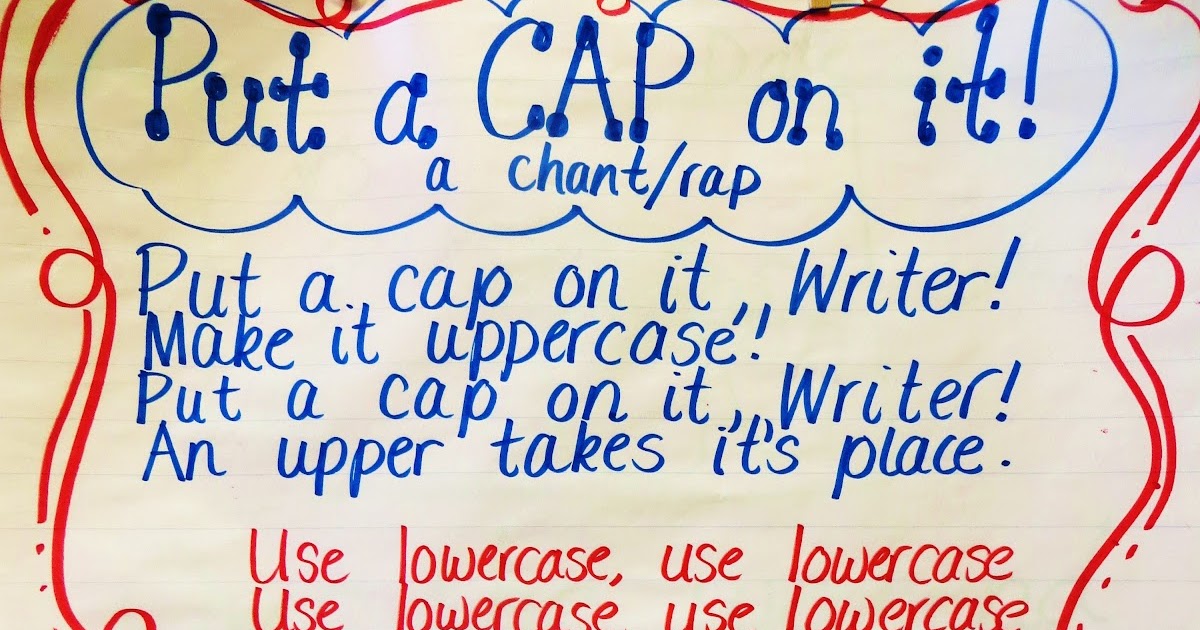 Put a CAP on it!
a chant/rap
Put a cap on it, Writer!
Make it uppercase!
Put a cap on it, Writer!
An upper takes it's place.
Use lowercase, use lowercase
Use lowercase, use lowercase